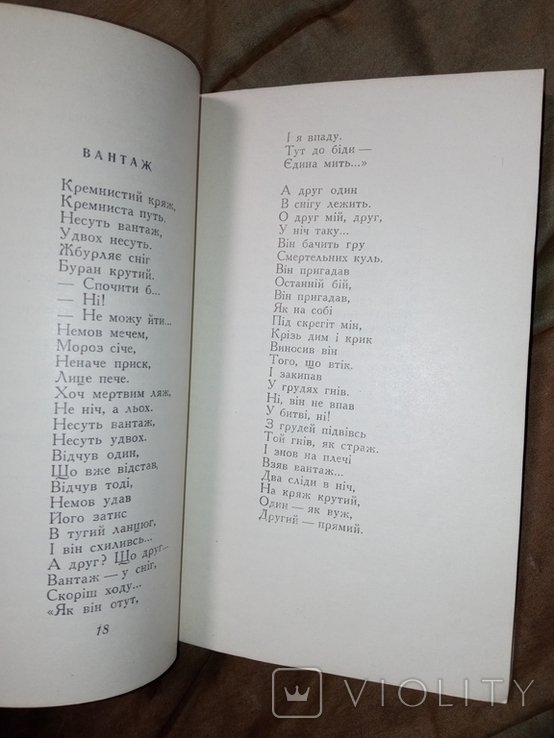 ВАНТАЖ
Кремнистий кряж,
Кремниста путь.
Несуть вантаж,
Удвох несуть.
Жбурляє сніг
Буран крутий.
— Спочити б...
— Ні!
— Не можу йти...
Немов мечем,
Мороз січе,
Неначе приск,
Лице пече.
Хоч мертвим ляж,
Не ніч, а льох.
Несуть вантаж,
Несуть удвох.
Відчув один,
Що вже відстав,
Відчув тоді,
Немов удав
Його затис
В тугий ланцюг,
І він схиливсь...
А друг? Що друг...
Вантаж — у сніг,
Скоріш ходу...
«Як він отут,
18
І я впаду.
Тут до біди —
Єдина мить...»
А друг один
В снігу лежить.
О друг мій, друг,
У ніч таку...
Він бачить гру
Смертельних куль.
Він пригадав
Останній бій,
Він пригадав,
Як на собі
Під скрегіт мін,
Крізь дим і крик
Виносив він
Того, що втік.
І закипав
У грудях гнів.
Ні, він не впав
У битві, ні!
З грудей підвівсь
Той гнів, як страж.
І знов на плечі
Взяв вантаж...
Два сліди в ніч,
На кряж крутий,
Один — як вуж,
Другий — прямий.
VIOLITY